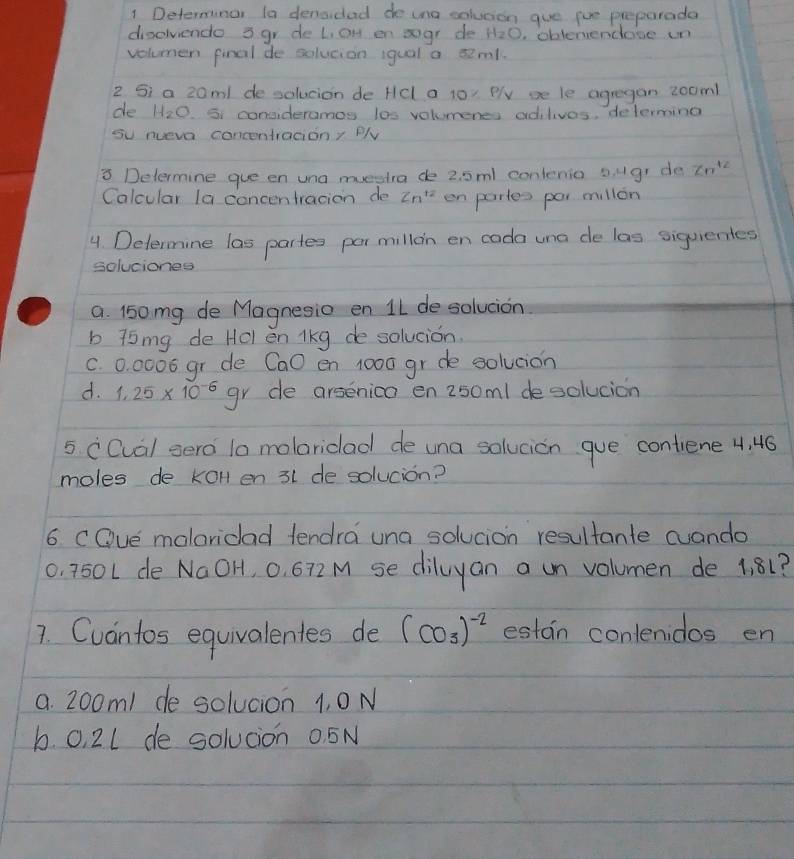 1 Determinar la densidad de una solución que fue preparada
disolviendo 3 gr de LiOH en 30gr de H2O, obteniendose un
volumen final de solucion igual a 32ml.
2 Si a 20ml de solución de HCl a 10% P/V se le agregan 200ml
de H2O. Si consideramos los volumenes aditivos, determina
su nueva concentración % P/V
3 Determine que en una muestra de 2.5ml contenia 5,4gr de Zn+2
Calcular la concentracion de Zn+2 en partes por millón
4. Determine las partes por millón en cada una de las siguientes
soluciones
a. 150mg de Magnesio en 1L de solución.
b 75mg de HCl en 1kg de solución.
c. 0.0006 gr de CaO en 1000 gr de solución
d. 1,25 x 10-6 gr de arsénico en 250ml de solución
5. ¿Cuál será la molaridad de una solución que contiene 4,46
moles de KOH en 3L de solución?
6. ¿Qué molaridad tendrá una solucion resultante cuando
0.750L de NaOH, 0.672M se diluyan a un volumen de 1,8L?
7. Cuántos equivalentes de (CO3)-2 están contenidos en
a. 200ml de solucion 1,0 N
b. 0,2L de solución 0.5N